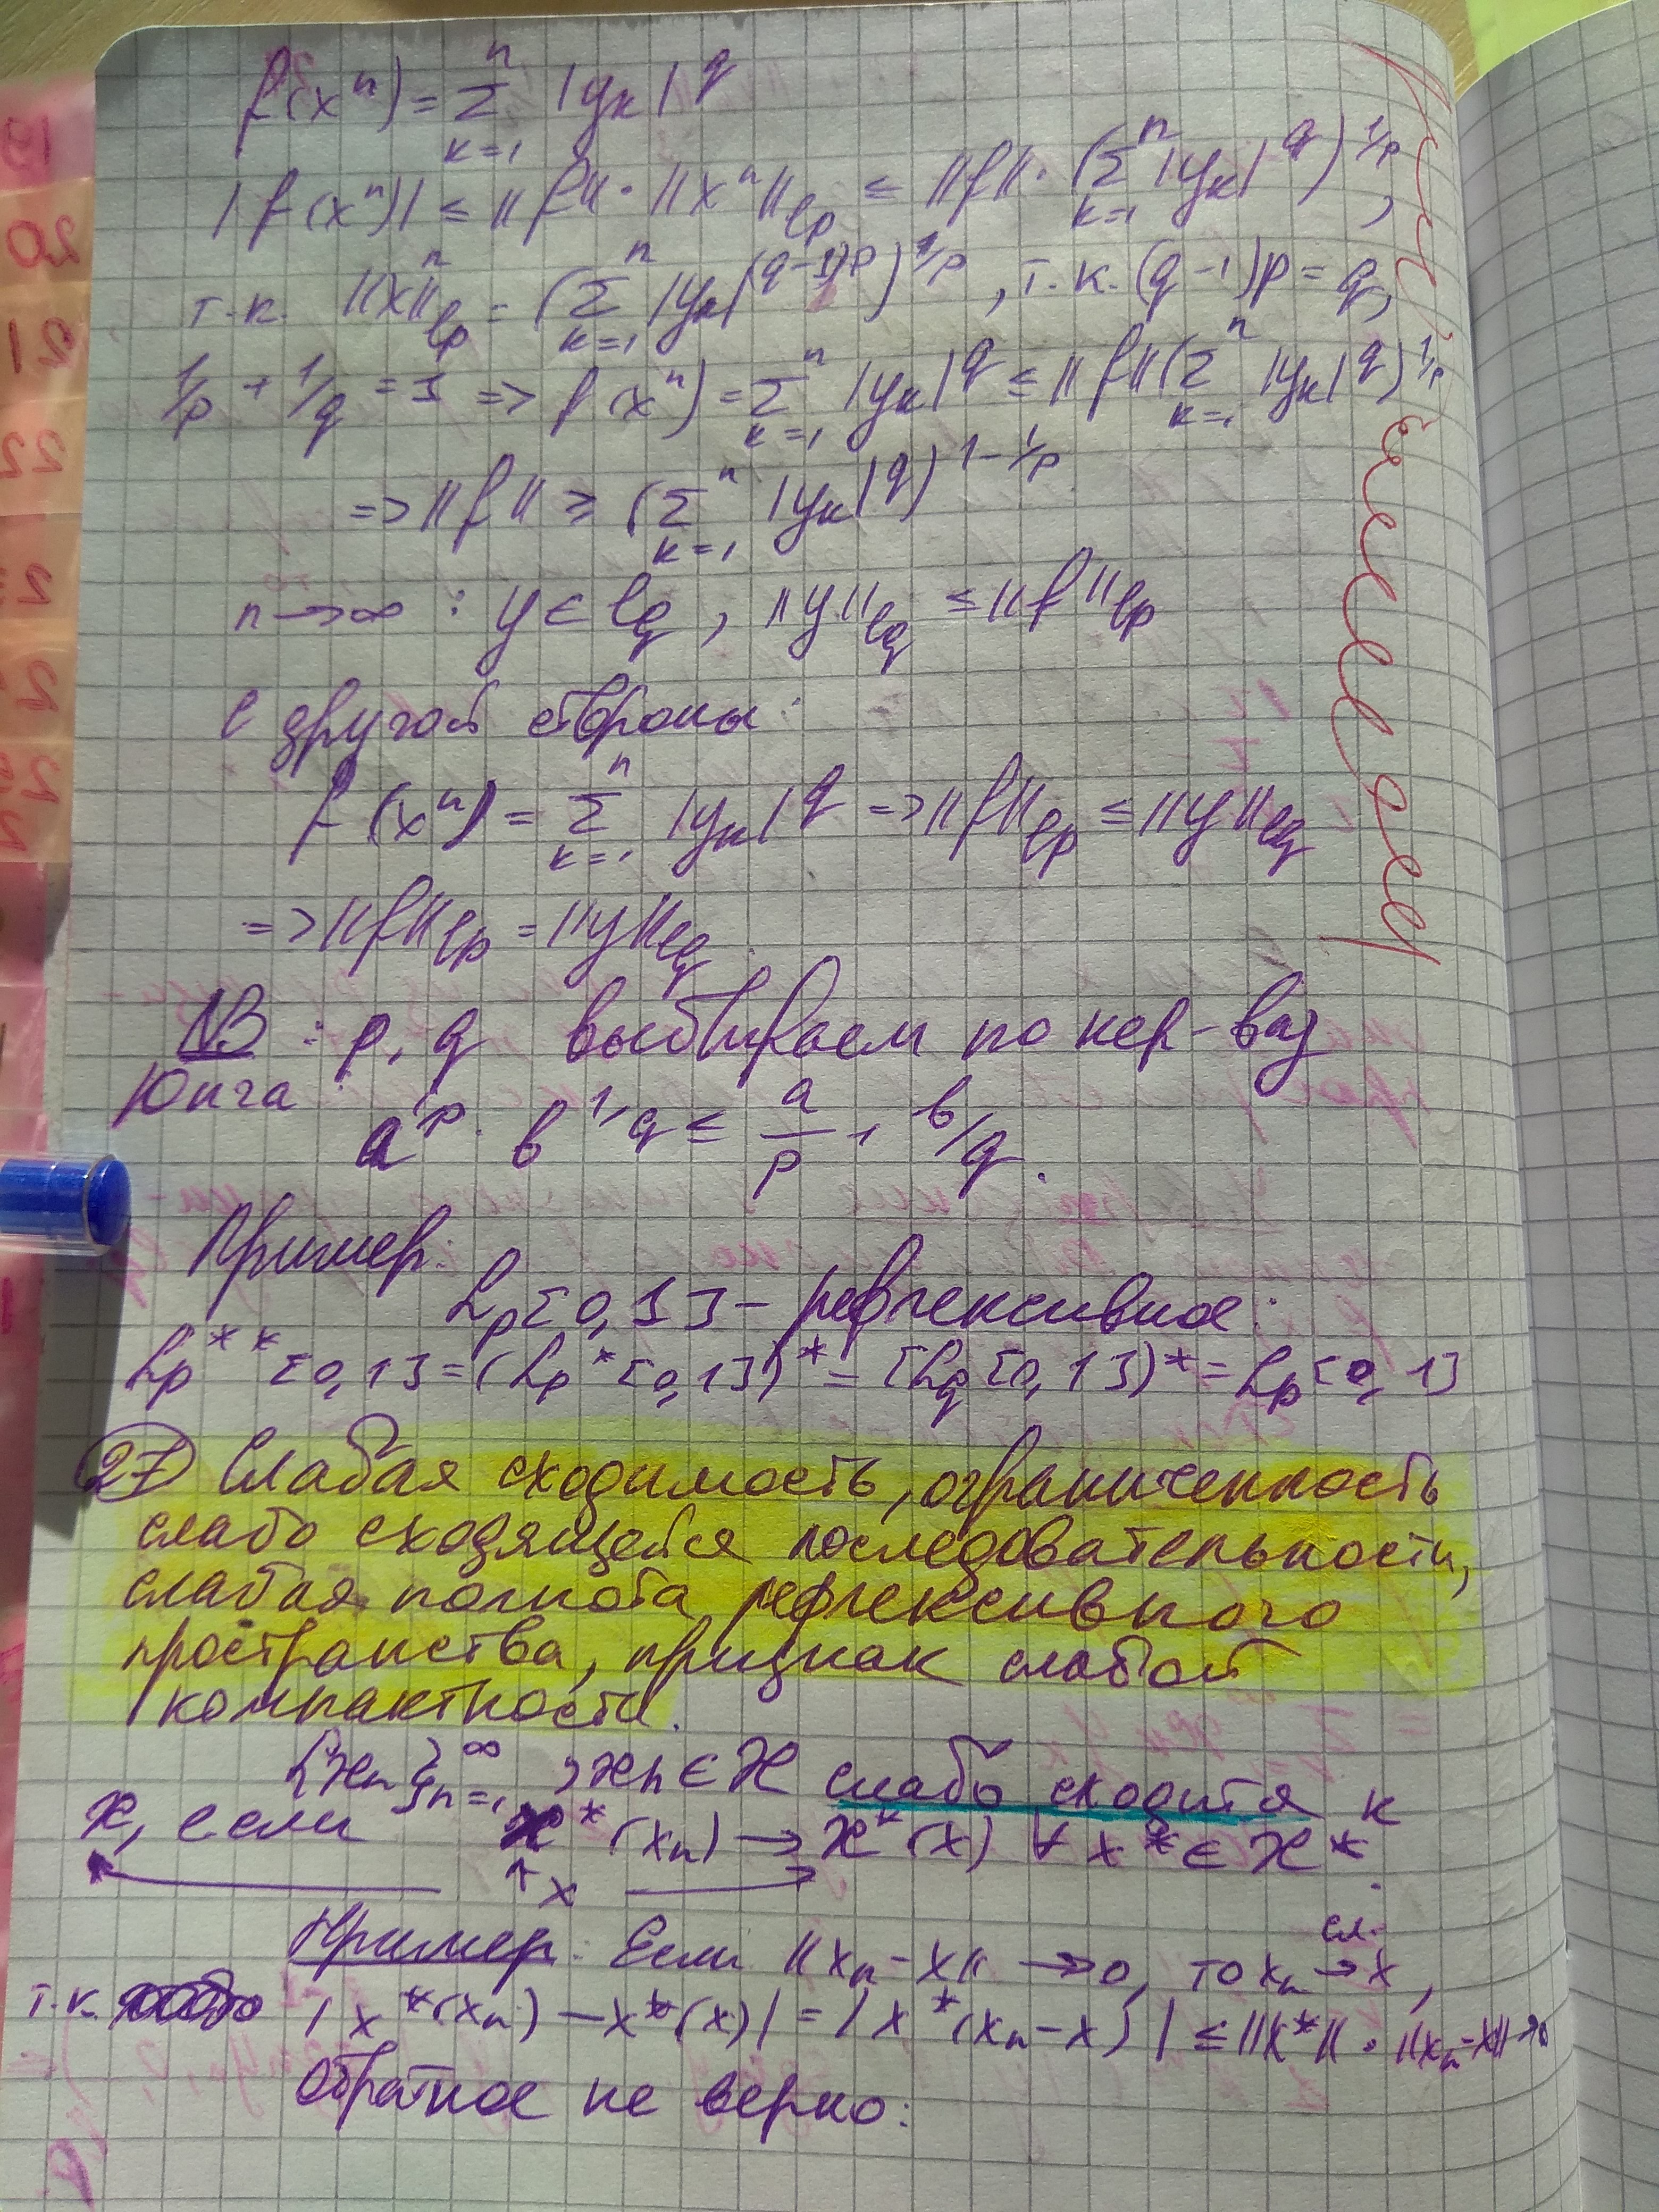 f(xⁿ) = Σ_{k=1}^{n} |y_k|^q
|f(xⁿ)| ≤ ||f|| · ||xⁿ||_{l_p} ≤ ||f|| · (Σ_{k=1}^{n} |y_k|^q)^{1/p},
т.к. ||xⁿ||_{l_p} = (Σ_{k=1}^{n} |y_k|^{(q-1)p})^{1/p}, т.к. (q-1)p = q,
1/p + 1/q = 1 => f(xⁿ) = Σ_{k=1}^{n} |y_k|^q ≤ ||f|| (Σ_{k=1}^{n} |y_k|^q)^{1/p}
=> ||f|| ≥ (Σ_{k=1}^{n} |y_k|^q)^{1-1/p}
n → ∞ : y ∈ l_q, ||y||_{l_q} ≤ ||f||_{l_p}
С другой стороны:
f(xⁿ) = Σ_{k=1}^{n} |y_k|^q => ||f||_{l_p} ≤ ||y||_{l_q}
=> ||f||_{l_p} = ||y||_{l_q}.
NB : p, q выбираем по нер-ву
Юнга : a^{1/p} · b^{1/q} ≤ a/p + b/q.
Пример:
L_p[0,1] – рефлексивное:
L_p**[0,1] = (L_p*[0,1])* = [L_q[0,1])* = L_p[0,1]
27 Слабая сходимость, ограниченность
слабо сходящейся последовательности,
слабая полнота рефлексивного
пространства, признак слабой
компактности.
{x_n}_{n=1}^∞, x_n ∈ X слабо сходится к
x, если x*(x_n) → x*(x) ∀ x* ∈ X*.
↑ x
Пример: Если ||x_n - x|| → 0, то x_n →^{сл.} x,
т.к. |x*(x_n) - x*(x)| = |x*(x_n - x)| ≤ ||x*|| · ||x_n - x|| → 0
Обратное не верно: